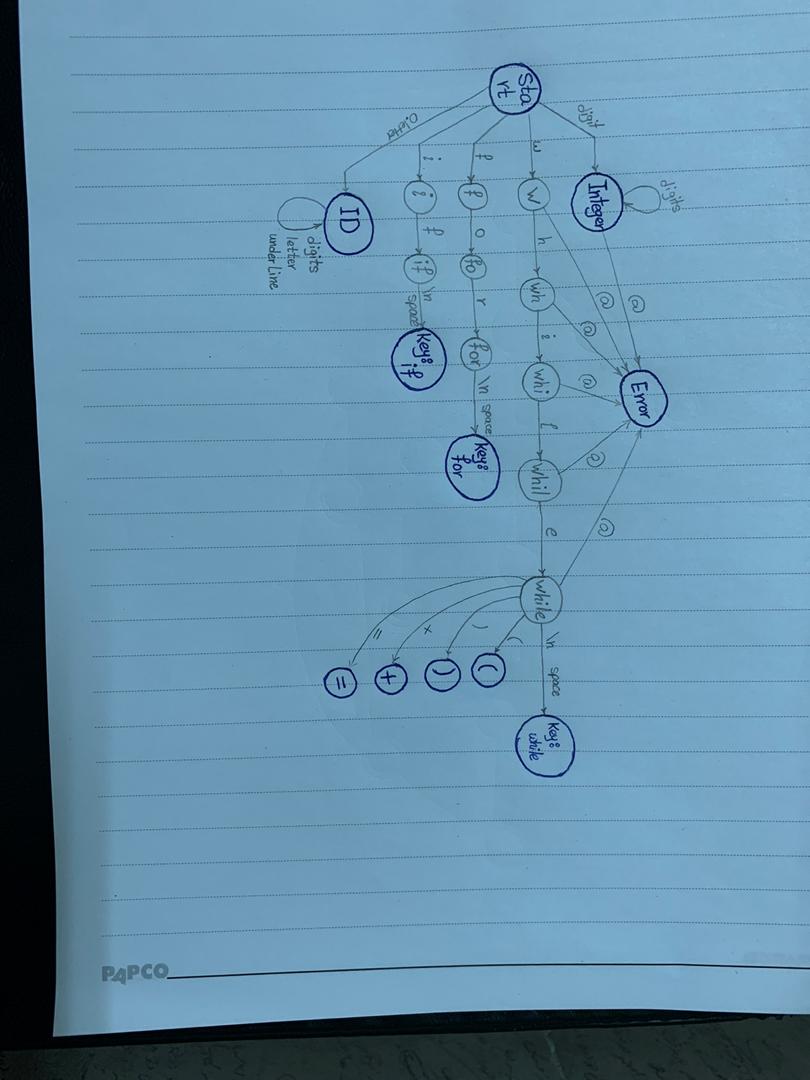 Start
digit
Integer
digits
@
Error
w
W
h
Wh
i
Whi
l
Whil
e
While
\n space
Key: while
@
@
@
@
@
(
(
)
)
+
=
=
f
f
o
fo
r
for
\n space
Key: for
i
i
f
if
\n space
Key: if
letter
ID
digits
letter
underline
PAPCO